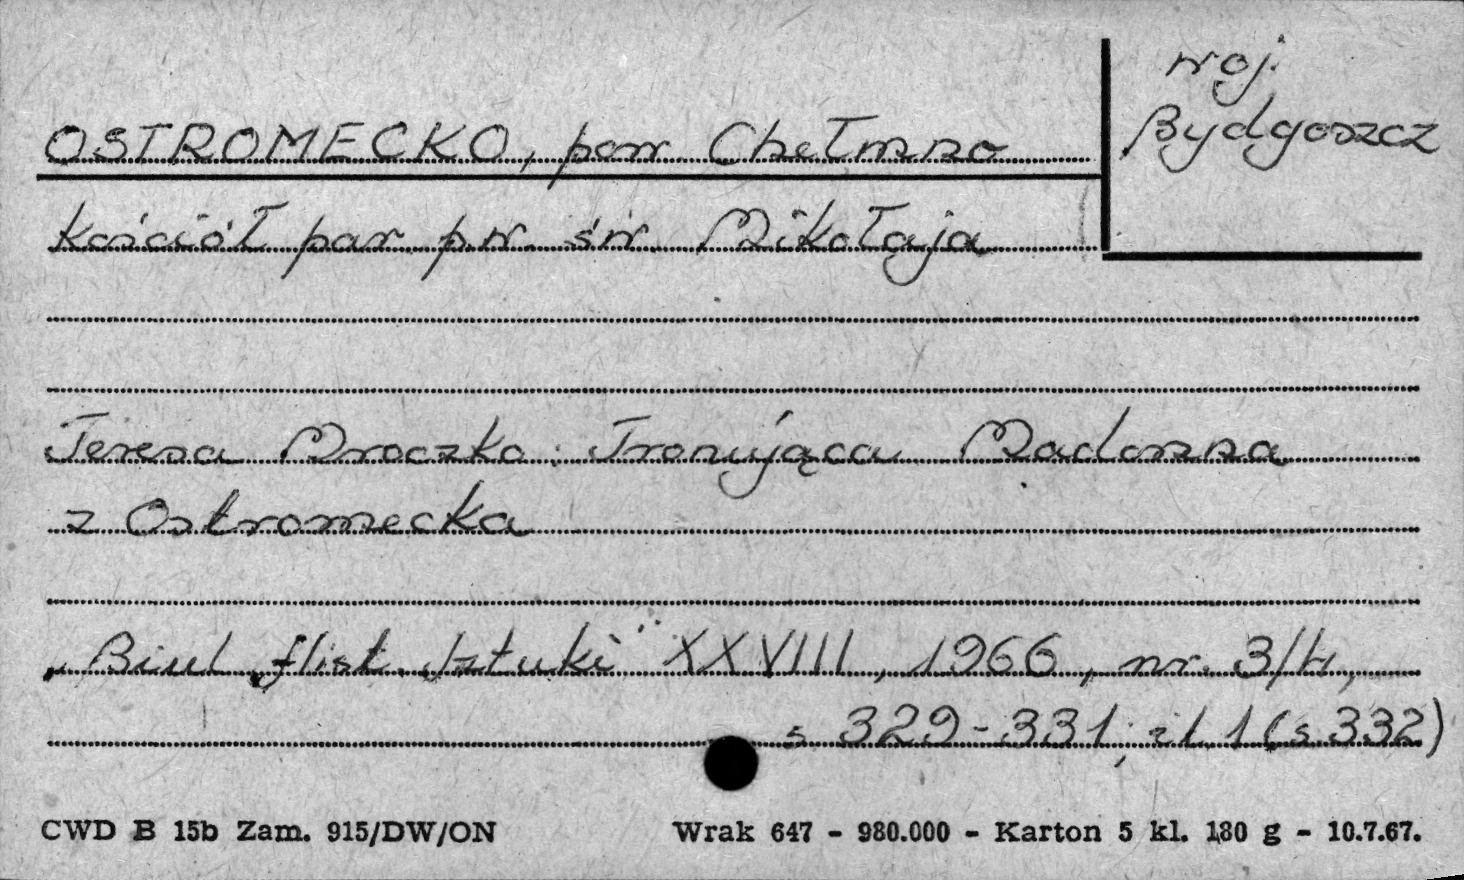 woj.
Bydgoszcz
OSTROMECKO, pow. Chełmno
kościół par. p.w. św. Mikołaja
Teresa Mroczko: Tronująca Madonna
z Ostromecka
„Biul. Hist. Sztuki" XXVIII, 1966, nr. 3/4,
s. 329-331; il. 1 (s. 332)
CWD B 15b Zam. 915/DW/ON Wrak 647 - 980.000 - Karton 5 kl. 180 g - 10.7.67.